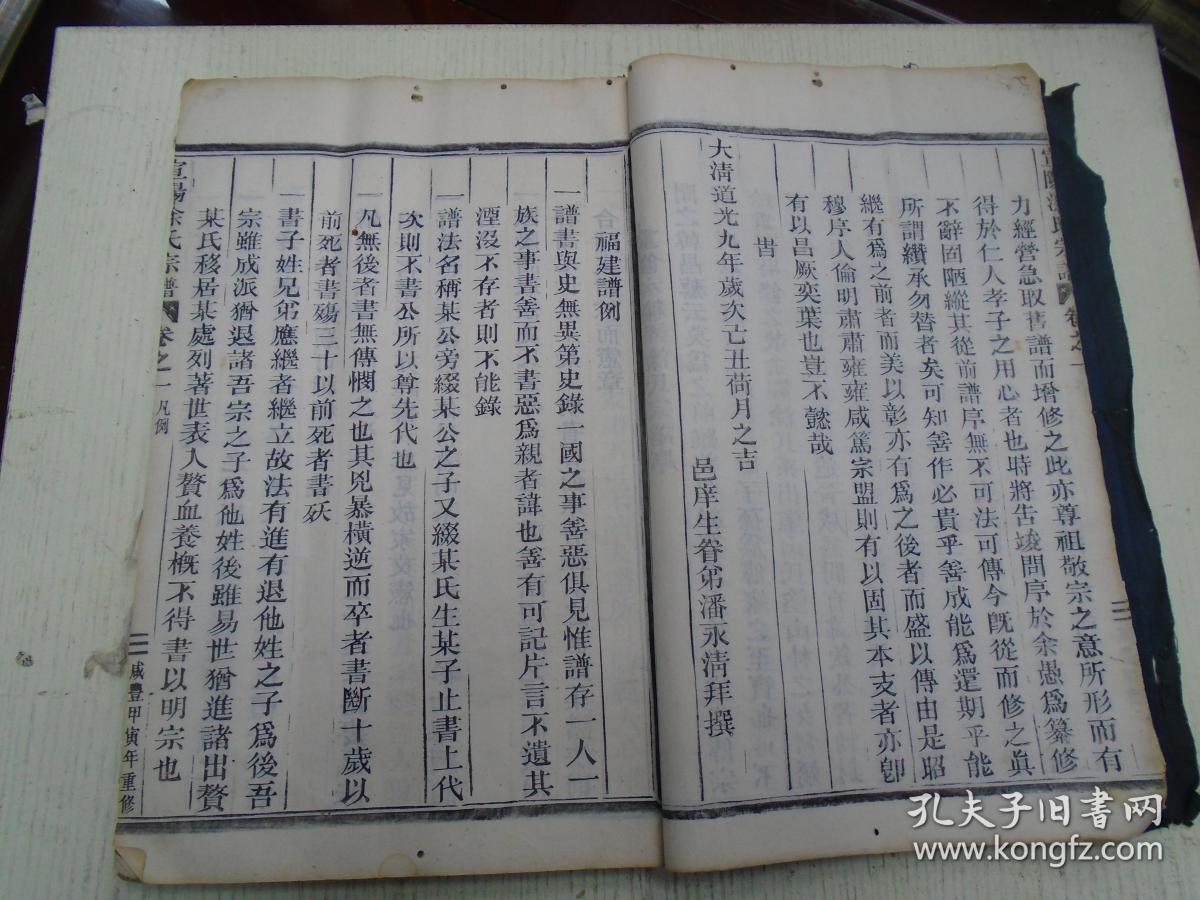 力經營急取舊譜而增修之此亦尊祖敬宗之意所形而有
得於仁人孝子之用心者也時將告竣問序於余愚爲纂修
不辭固陋縱其從前譜序無不可法可傳今既從而修之眞
所謂纘承勿替者矣可知善作必貴乎善成能爲還期乎能
繼有爲之前者而美以彰亦有爲之後者而盛以傳由是昭
穆序人倫明肅肅雍雍咸篤宗盟則有以固其本支者亦卽
有以昌厥奕葉也豈不懿哉
旹
大清道光九年歲次己丑荷月之吉
邑庠生眷弟潘永淸拜撰
福建譜例
一譜書與史無異第史錄一國之事善惡俱見惟譜存一人一
族之事書善而不書惡爲親者諱也善有可記片言不遺其
湮沒不存者則不能錄
一譜法名稱某公旁綴某公之子又綴某氏生某子止書上代
次則不書公所以尊先代也
一凡無後者書無傳憫之也其兇暴橫逆而卒者書斷十歲以
前死者書殤三十以前死者書妖
一書子姓兄弟應繼者繼立故法有進有退他姓之子爲後吾
宗雖成派猶退諸吾宗之子爲他姓後雖易世猶進諸出贅
某氏移居某處列著世表入贅血養槪不得書以明宗也
宣陽余氏宗譜 卷之一 凡例
二
咸豐甲寅年重修
孔夫子旧书网
www.kongfz.com